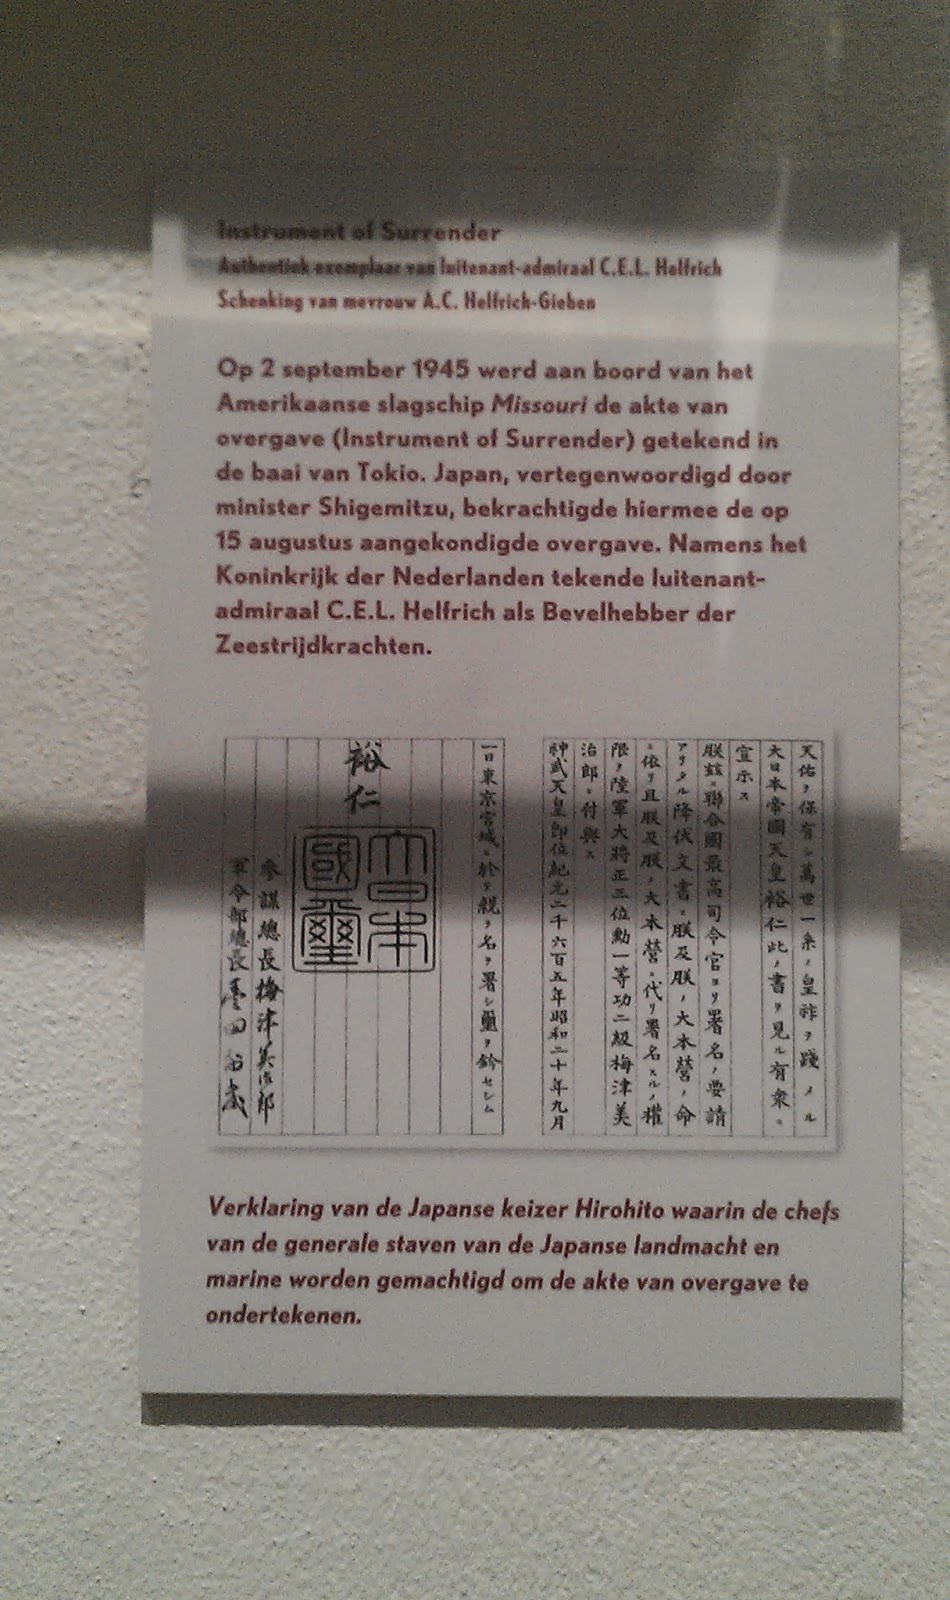 Instrument of Surrender
Authentiek exemplaar van luitenant-admiraal C.E.L. Helfrich
Schenking van mevrouw A.C. Helfrich-Gieben
Op 2 september 1945 werd aan boord van het
Amerikaanse slagschip Missouri de akte van
overgave (Instrument of Surrender) getekend in
de baai van Tokio. Japan, vertegenwoordigd door
minister Shigemitzu, bekrachtigde hiermee de op
15 augustus aangekondigde overgave. Namens het
Koninkrijk der Nederlanden tekende luitenant-
admiraal C.E.L. Helfrich als Bevelhebber der
Zeestrijdkrachten.
天佑ヲ保有シ萬世一系ノ皇祚ヲ踐メル
大日本帝國天皇裕仁此ノ書ヲ見ル有衆ニ
宣示ス
朕茲ニ聯合國最高司令官ヨリ署名ノ要請
アリタル降伏文書ニ朕及朕ノ大本營ノ命
ニ依リ且朕及朕ノ大本營ニ代リ署名スルノ權
限ヲ陸軍大將正三位勳一等功二級梅津美
治郎ニ付與ス
神武天皇即位紀元二千六百五年昭和二十年九月
一日東京宮城ニ於テ親ラ名ヲ署シ璽ヲ鈐セシム
裕仁
大日本
國璽
參謀總長梅津美治郎
軍令部總長
Verklaring van de Japanse keizer Hirohito waarin de chefs
van de generale staven van de Japanse landmacht en
marine worden gemachtigd om de akte van overgave te
ondertekenen.